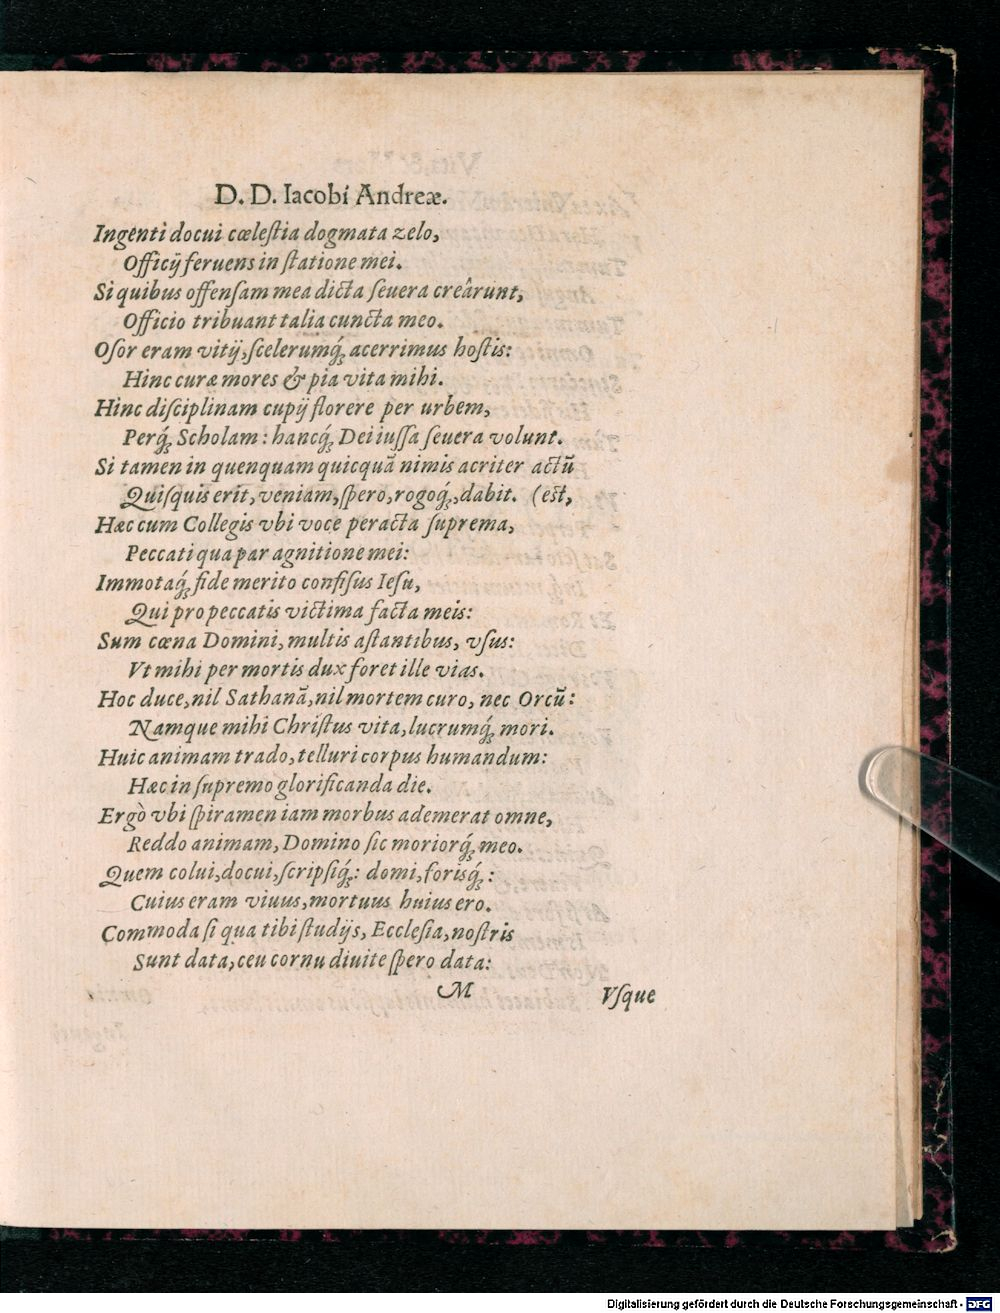 D. D. Iacobi Andreæ.
Ingenti docui cœlestia dogmata zelo,
Officij feruens in statione mei.
Si quibus offensam mea dicta seuera creârunt,
Officio tribuant talia cuncta meo.
Osor eram vitij, scelerumq́; acerrimus hostis:
Hinc curæ mores & pia vita mihi.
Hinc disciplinam cupij florere per urbem,
Perq́; Scholam: hancq́; Dei iussa seuera volunt.
Si tamen in quenquam quicquã nimis acriter actũ
Quisquis erit, veniam, spero, rogoq́;, dabit. (est,
Hæc cum Collegis vbi voce peracta suprema,
Peccati qua par agnitione mei:
Immotaq́; fide merito confisus Iesu,
Qui pro peccatis victima facta meis:
Sum cœna Domini, multis astantibus, vsus:
Vt mihi per mortis dux foret ille vias.
Hoc duce, nil Sathanã, nil mortem curo, nec Orcũ:
Namque mihi Christus vita, lucrumq́; mori.
Huic animam trado, telluri corpus humandum:
Hæc in supremo glorificanda die.
Ergò vbi spiramen iam morbus ademerat omne,
Reddo animam, Domino sic moriorq́; meo.
Quem colui, docui, scripsiq́;: domi, forisq́;:
Cuius eram viuus, mortuus huius ero.
Commoda si qua tibi studijs, Ecclesia, nostris
Sunt data, ceu cornu diuite spero data:
M Vsque
Digitalisierung gefördert durch die Deutsche Forschungsgemeinschaft - DFG